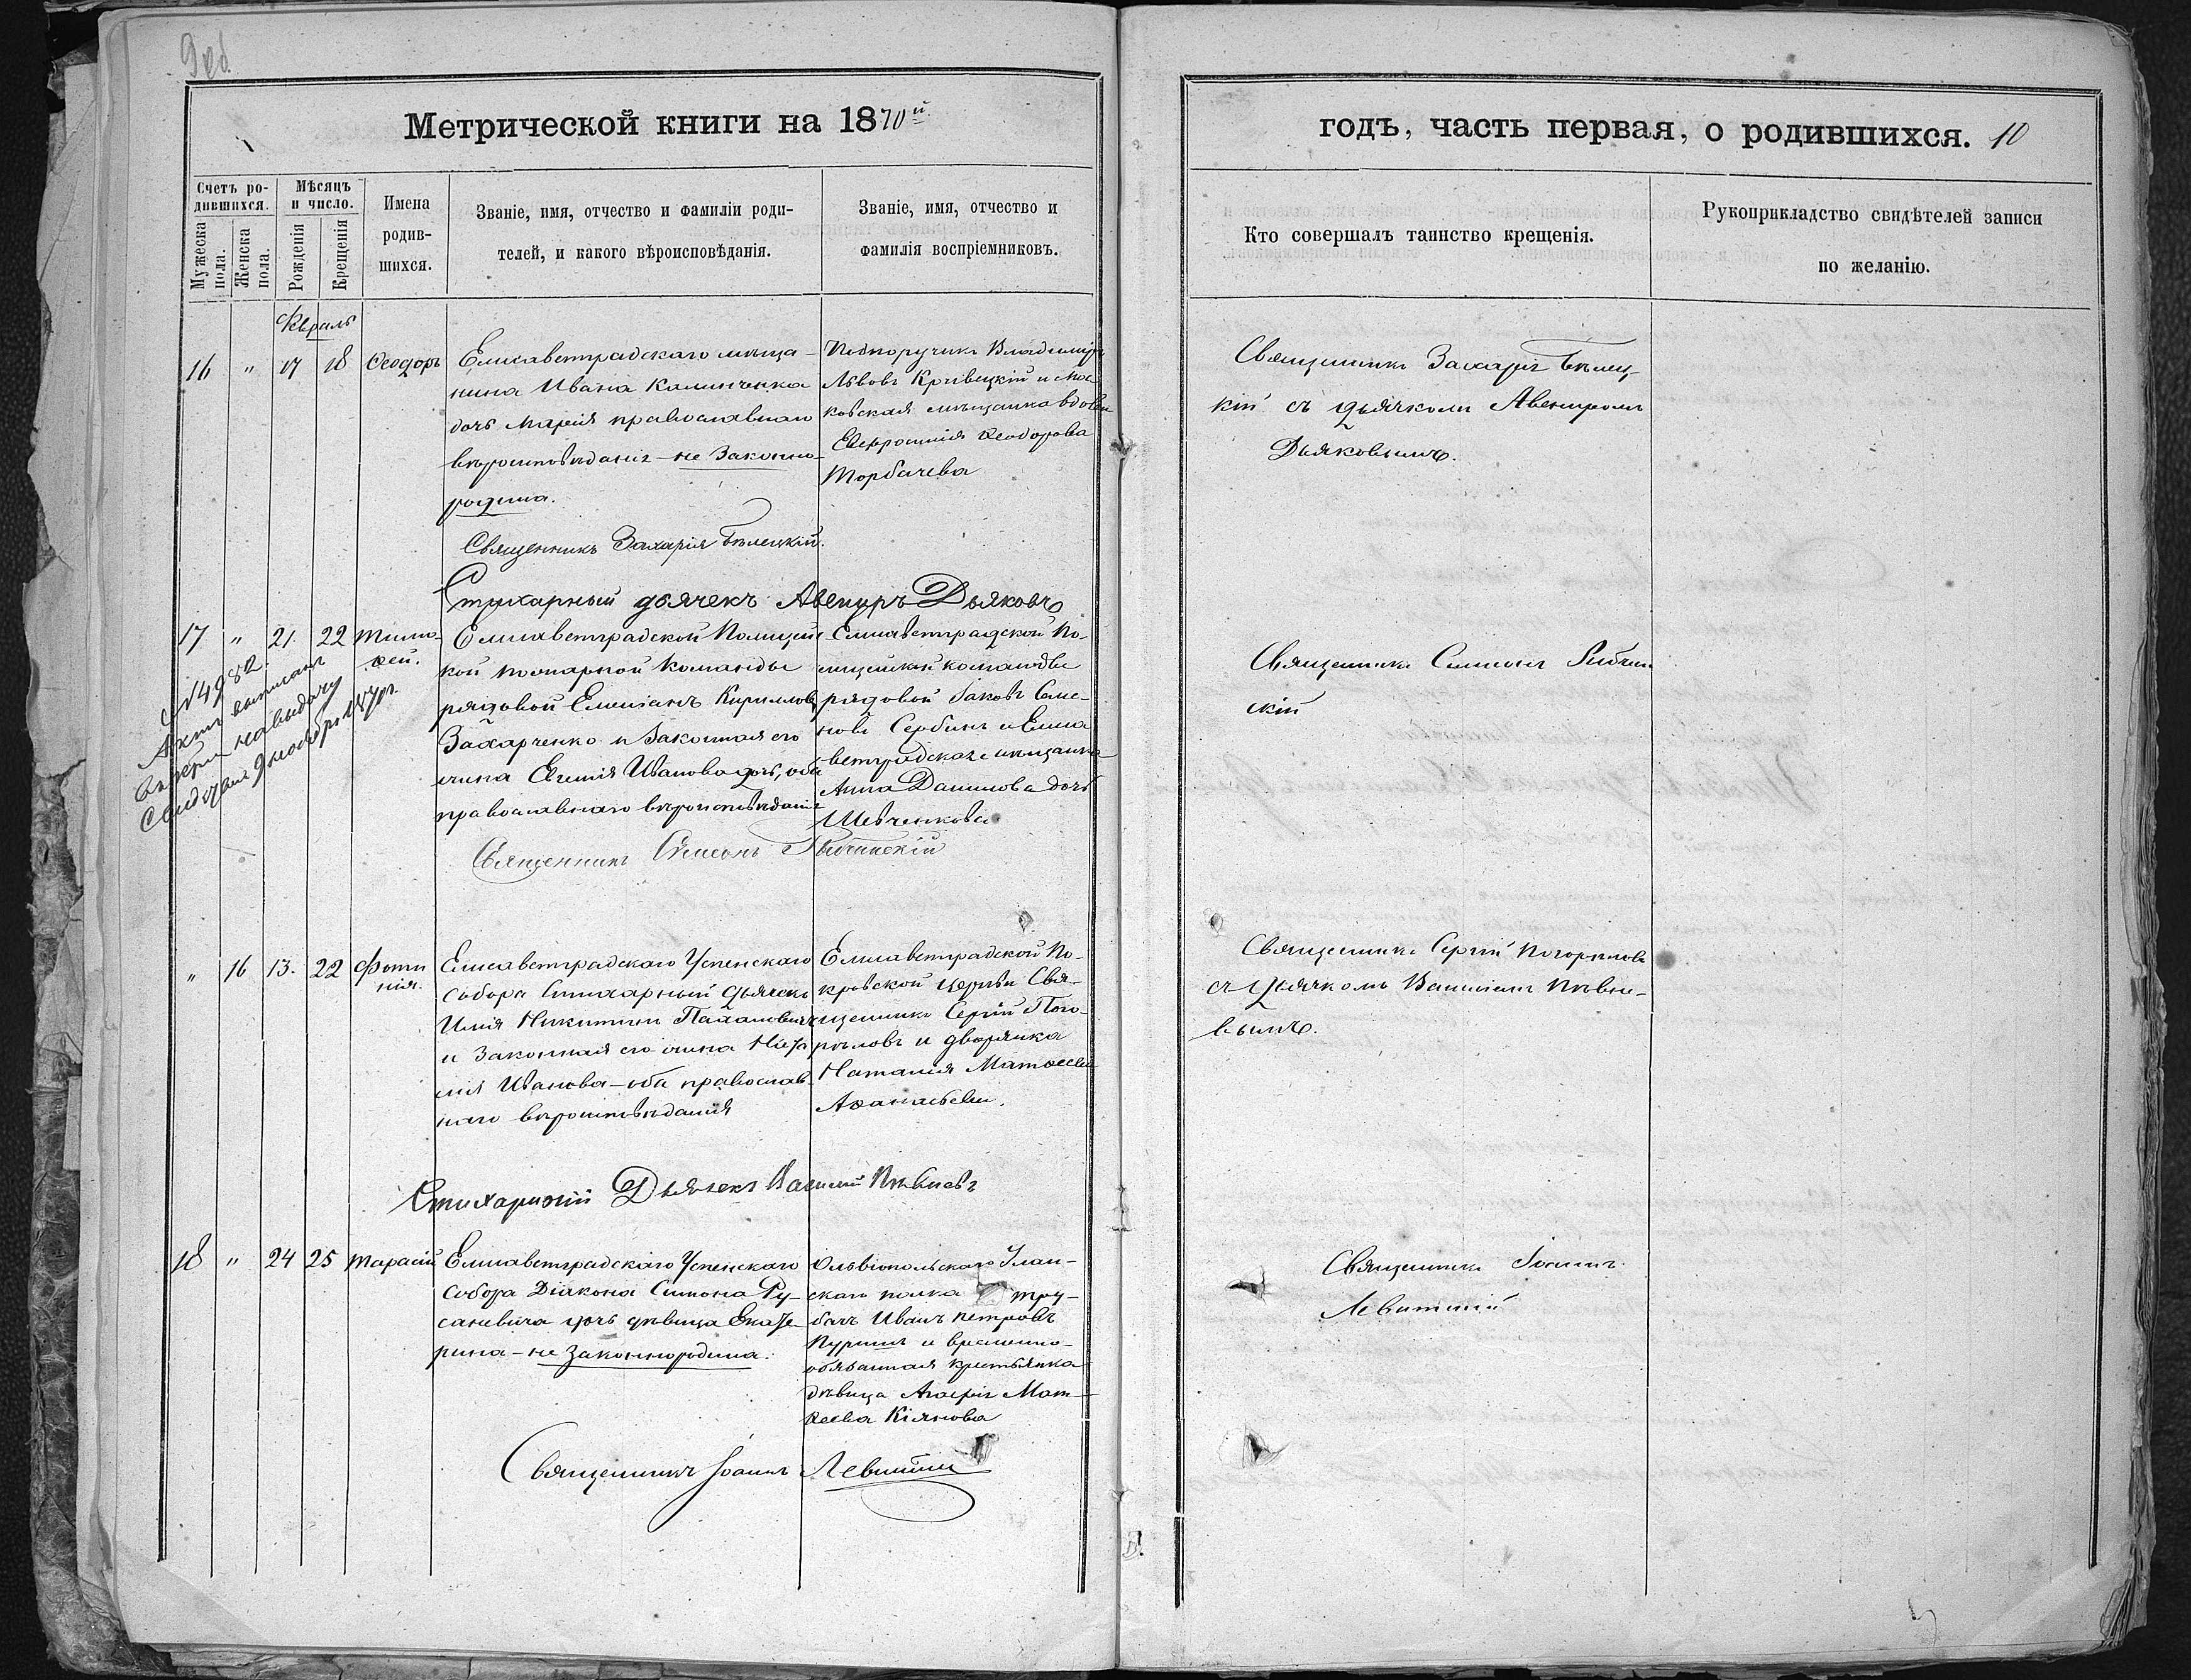 9 об.
Метрической книги на 1870й
годъ, часть первая, о родившихся. 10
Счетъ ро-
дившихся.
Мужеска
пола.
Женска
пола.
Мѣсяцъ
и число.
Рожденія
Крещенія
Имена
родив-
шихся.
Званіе, имя, отчество и фамиліи роди-
телей, и какого вѣроисповѣданія.
Званіе, имя, отчество и
фамилія воспріемниковъ.
Кто совершалъ таинство крещенія.
Рукоприкладство свидѣтелей записи
по желанію.
16 " 17 18 Ѳеодоръ
Елисаветградскаго мѣща-
нина Ивана Калинченка
дочь Марія православнаго
вѣроисповѣданія - не законно-
рождена.
Подпоручикъ Владиміръ
Львовъ Кривецкій и Мос
ковская мѣщанка вдова
Евфросинія Ѳеодорова
Торбачева
Священникъ Захарія Бѣлец-
кій съ дьячкомъ Авениромъ
Дьяковымъ.
Священникъ Захарія Бѣлецкій.
Стихарный дьячекъ Авениръ Дьяковъ
17 " 21. 22 Тимо-
ѳей.
Елисаветградской Полицейс
кой пожарной команды
рядовой Емельянъ Кирилловъ
Захарченко и законная его
жена Евгенія Иванова дочь, оба
православнаго вѣроисповѣданія
Елисаветградской По-
лицейской команды
рядовой Іаковъ Семе-
новъ Сербинъ и Елиса
ветградская мѣщанка
Анна Данилова дочь
Шевченкова
Священникъ Симеонъ
скій
№ 4982
Актъ выписанъ
на выдачу
Священникъ Симеонъ
" 16 13. 22 Фоти
нія.
Елисаветградскаго Успенскаго
собора Стихарный дьячекъ
Илія Никитинъ Палановичъ
и законная его жена
Иванова - оба православ-
наго вѣроисповѣданія
Елисаветградской По-
кровской церкви Свя-
щенникъ Сергій Пого-
рѣловъ и дворянка
Наталія Матѳеева
Аѳанасьева.
Священникъ Сергій Погорѣловъ
съ дьячкомъ Василіемъ Пѣвне-
вымъ.
Стихарный Дьячекъ Василій Пѣвневъ
18 " 24 25 Тарасій
Елисаветградскаго Успенскаго
собора Діакона Симона Ру-
саневича дочь дѣвица Екате-
рина - не законнорождена.
Ольвіопольскаго Улан-
скаго полка тру-
бачъ Иванъ Петровъ
и временно-
обязанная крестьянка
дѣвица Агафія Мат-
ѳеева Кіянова
Священникъ Іоаннъ
Левитскій
Священникъ Іоаннъ Левитскій